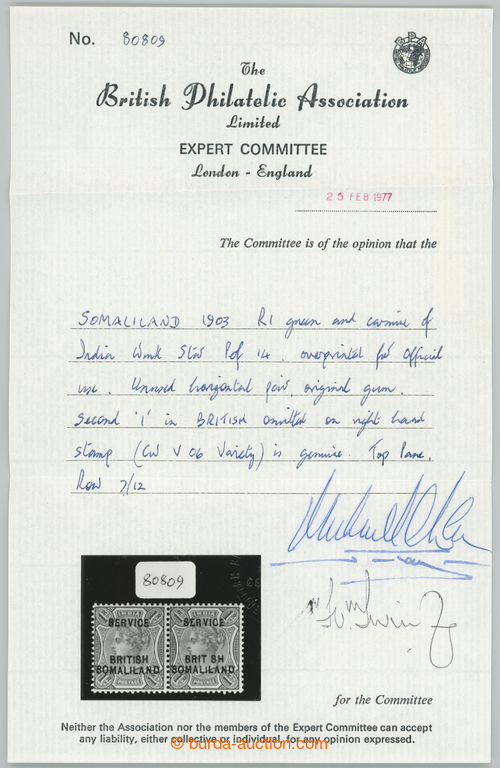 No. 80809
BPA
The
British Philatelic Association
Limited
EXPERT COMMITTEE
London - England
25 FEB 1977
The Committee is of the opinion that the
SOMALILAND 1903 R1 green and carmine of
India Wmk Star Perf 14, overprinted for Official
use. Unused horizontal pair, original gum.
Second 'I' in BRITISH omitted on right hand
stamp (CW V 06 Variety) is genuine. Top Pane,
Row 7/12
80809
INDIA INDIA
SERVICE SERVICE
BRITISH BRIT SH
SOMALILAND SOMALILAND
POSTAGE POSTAGE
for the Committee
Neither the Association nor the members of the Expert Committee can accept
any liability, either collective or individual, for any opinion expressed.
© burda-auction.com